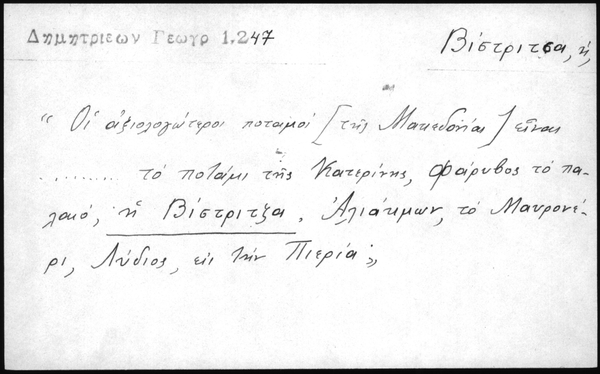 Δημητριεων Γεωγρ 1.247
Βίστριτσα, ἡ,
“ Οἱ ἀξιολογώτεροι ποταμοί [τῆς Μακεδονίας] εἶναι
.......... τὸ ποτάμι τῆς Κατερίνης, Φάρυβος τὸ πα-
λαιό, ἡ Βίστριτζα, Ἁλιάκμων, τὸ Μαυρονέ-
ρι, Λύδιος, εἰς τὴν Πιερία „